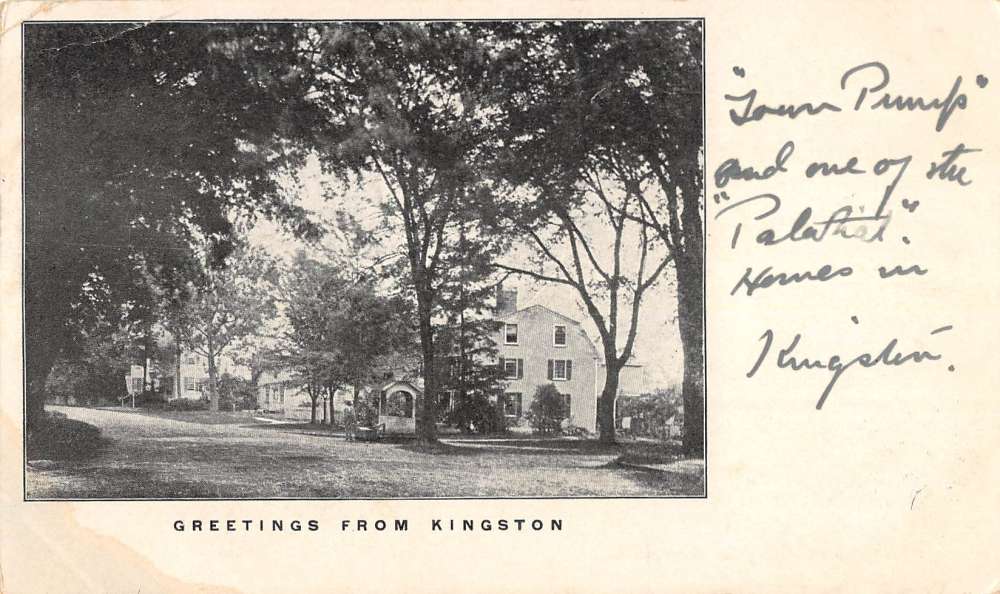 "Town Pump"
and one of the
"Palatial"
Homes in
Kingston.
GREETINGS FROM KINGSTON